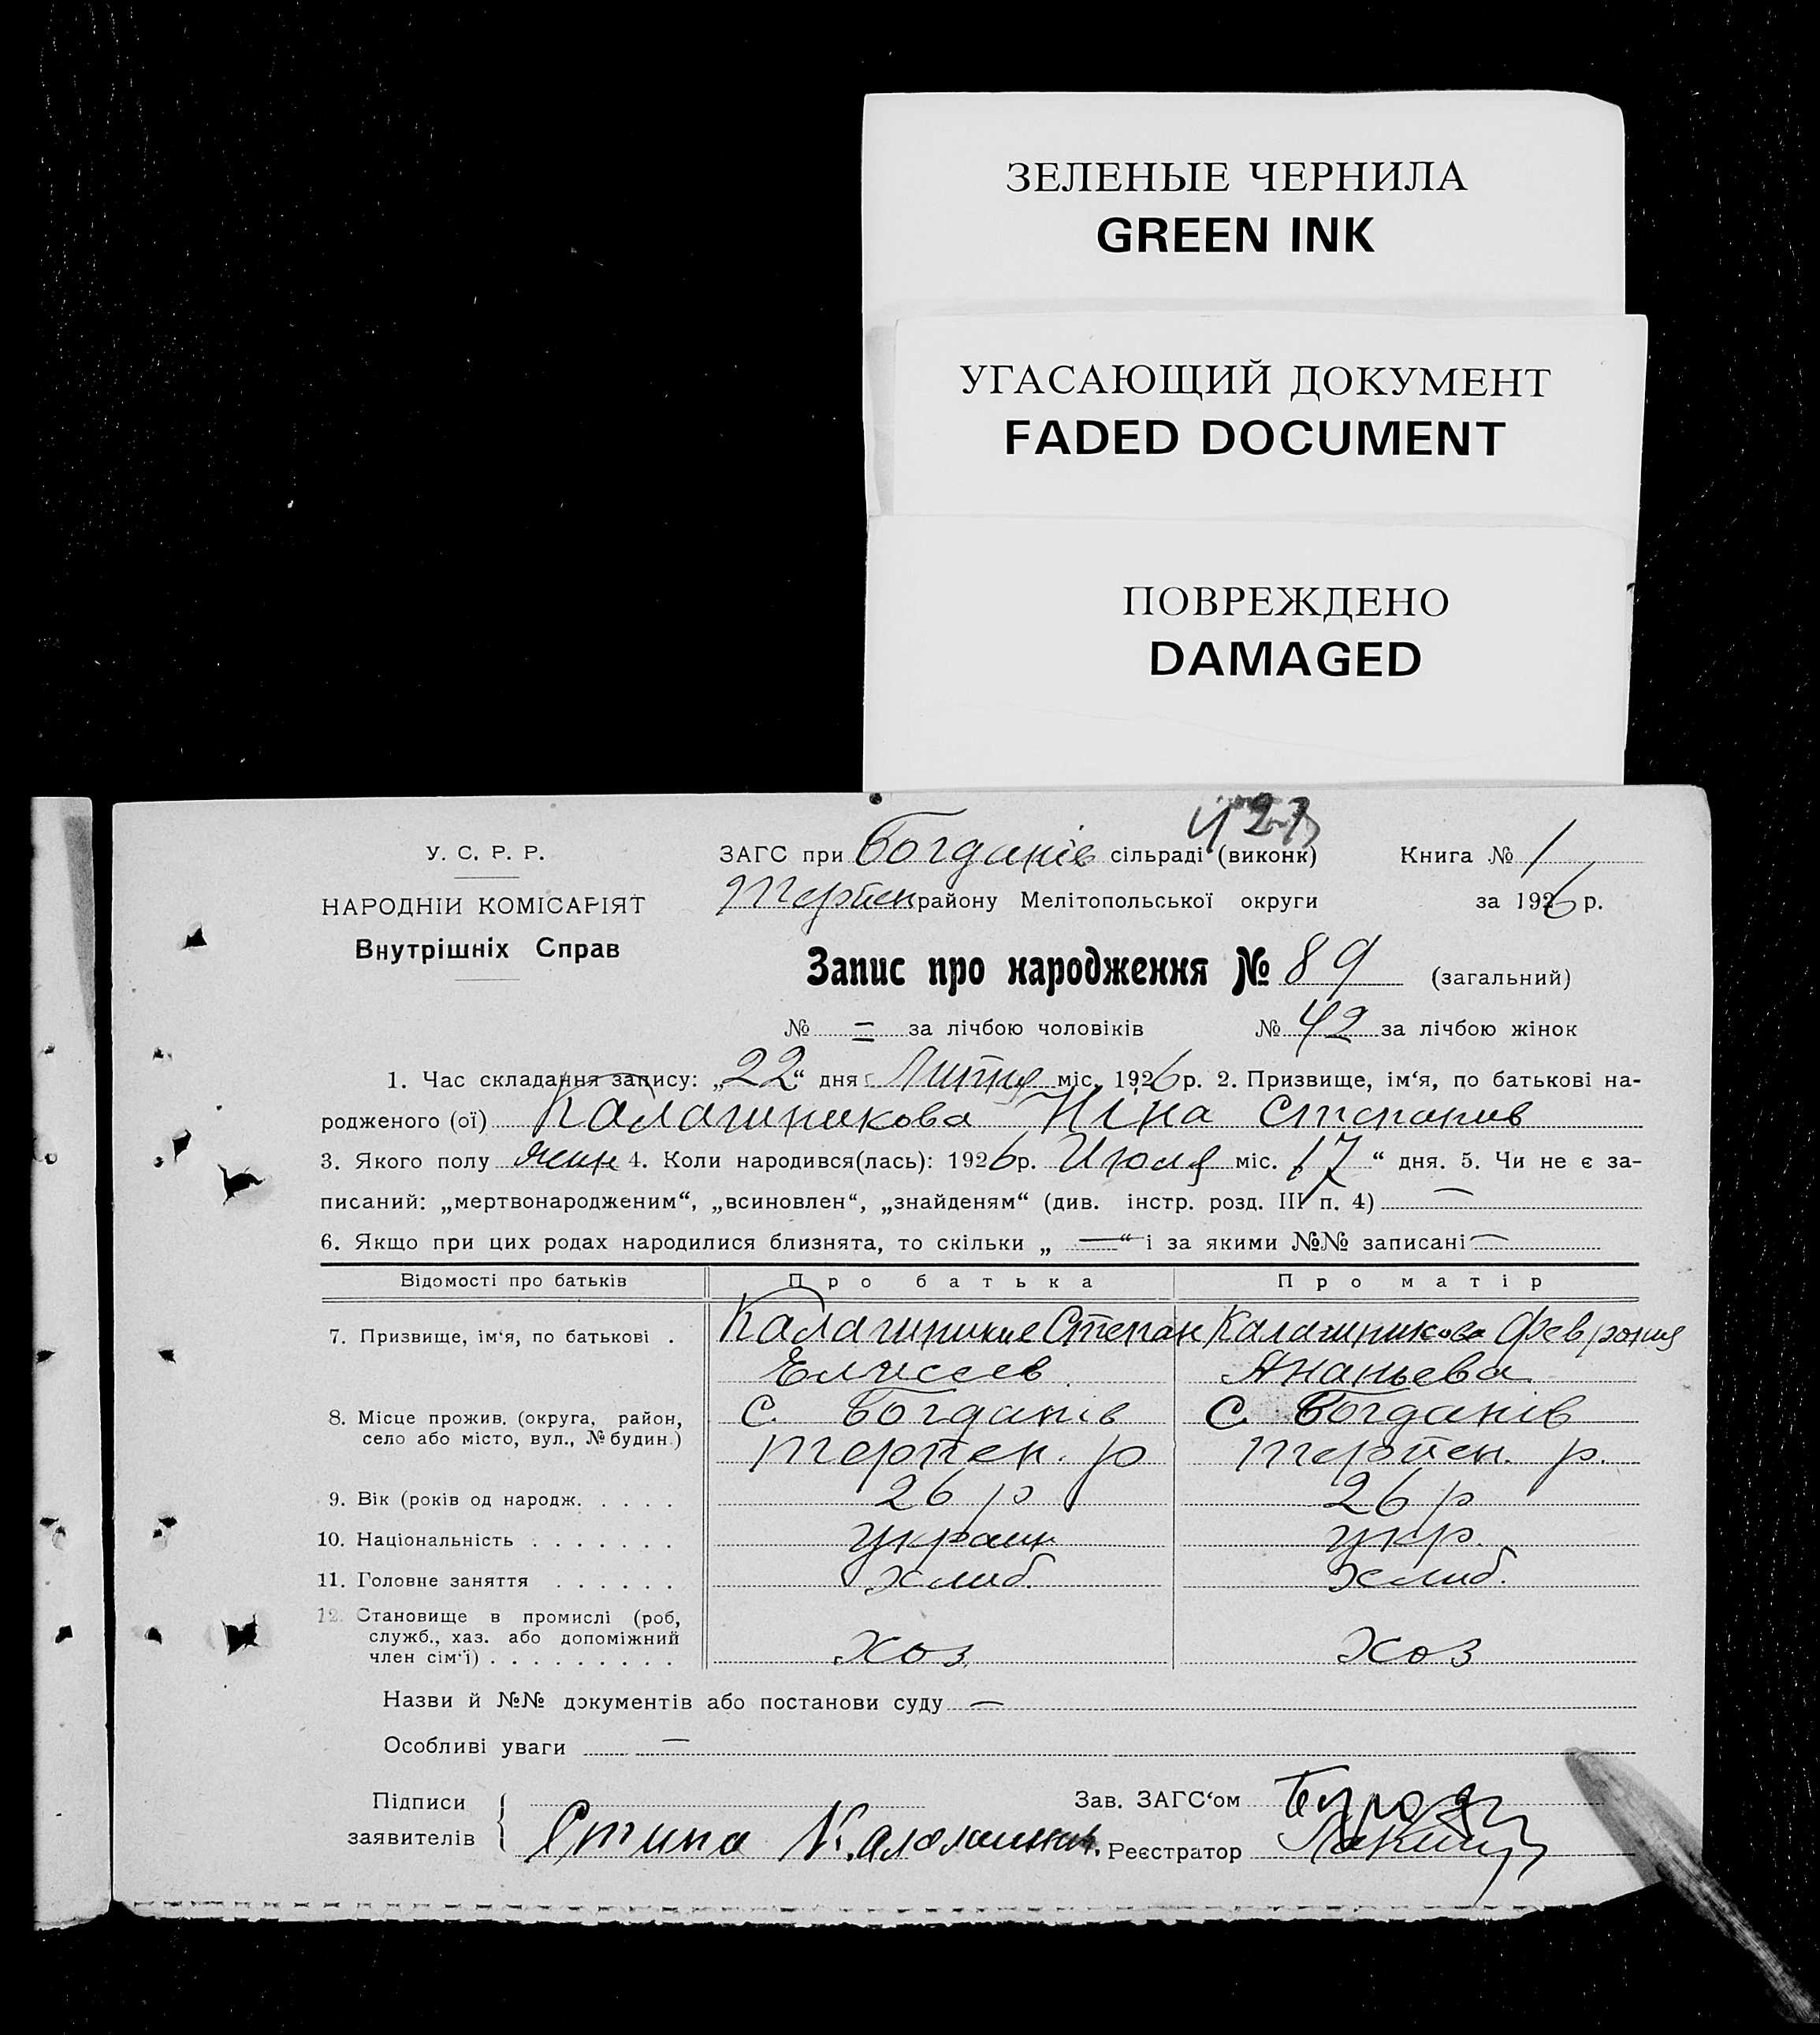 ЗЕЛЕНЫЕ ЧЕРНИЛА
GREEN INK
УГАСАЮЩИЙ ДОКУМЕНТ
FADED DOCUMENT
ПОВРЕЖДЕНО
DAMAGED
У. С. Р. Р.
НАРОДНІЙ КОМІСАРІЯТ
Внутрішніх Справ
ЗАГС при Богданів сільраді (виконк) Книга № 1
Терпен району Мелітопольської округи за 1926 р.
Запис про народження № 89 (загальний)
№ = за лічбою чоловіків № 42 за лічбою жінок
1. Час складання запису: „22“ дня Липня міс. 1926 р. 2. Призвище, ім‘я, по батькові на-
родженого (ої) Калашникова Ніна Степанив
3. Якого полу жин 4. Коли народився(лась): 1926 р. Июля міс. 17 “ дня. 5. Чи не є за-
писаний: „мертвонародженим“, „всиновлен“, „знайденям“ (див. інстр. розд. III п. 4) —
6. Якщо при цих родах народилися близнята, то скільки „ — “ і за якими №№ записані —
Відомості про батьків Про батька Про матір
7. Призвище, ім‘я, по батькові . Калашників Степан Калашникова Феврония
Елисеев Ананьева
8. Місце прожив. (округа, район, с. Богданів с. Богданів
село або місто, вул., № будин.) Терпен. р Терпен. р.
9. Вік (років од народж. . . . . 26 р 26 р
10. Національність . . . . . . . украин укр.
11. Головне заняття . . . . . . хлиб. хлиб.
12. Становище в промислі (роб,
служб., хаз. або допоміжний
член сім‘ї) . . . . . . . . . хоз. хоз
Назви й №№ документів або постанови суду —
Особливі уваги —
Підписи Зав. ЗАГС‘ом
заявителів Реєстратор